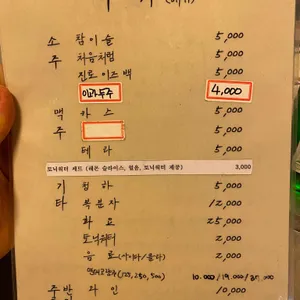 소 참이슬 5,000
주 처음처럼 5,000
진로이즈백 5,000
이과두주 4,000
맥 카스 5,000
주 5,000
테라 5,000
토닉워터 세트 (레몬 슬라이스, 얼음, 토닉워터 제공) 3,000
기 청하 5,000
타 복분자 12,000
화요 25,000
토닉워터 2,000
음료 (사이다/콜라) 2,000
연태고량주 (125, 250, 500) 10.000/19.000/35.000
와인 10,000